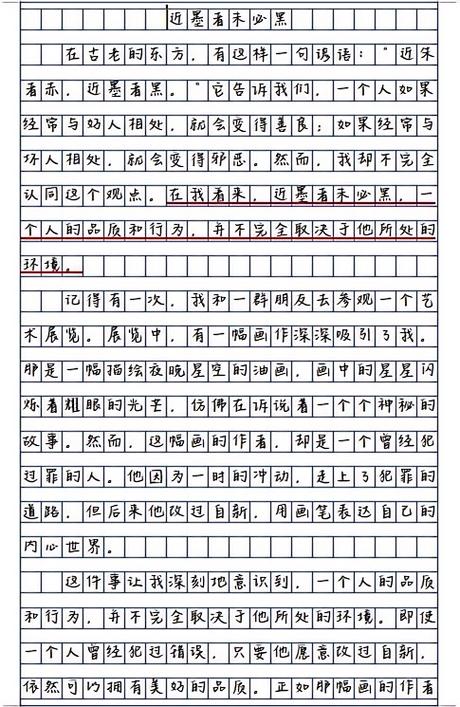 近墨者未必黑
在古老的东方，有这样一句谚语：“近朱
者赤，近墨者黑。”它告诉我们，一个人如果
经常与好人相处，就会变得善良；如果经常与
坏人相处，就会变得邪恶。然而，我却不完全
认同这个观点。在我看来，近墨者未必黑，一
个人的品质和行为，并不完全取决于他所处的
环境。
记得有一次，我和一群朋友去参观一个艺
术展览。展览中，有一幅画作深深吸引了我。
那是一幅描绘夜晚星空的油画，画中的星星闪
烁着耀眼的光芒，仿佛在诉说着一个个神秘的
故事。然而，这幅画的作者，却是一个曾经犯
过罪的人。他因为一时的冲动，走上了犯罪的
道路，但后来他改过自新，用画笔表达自己的
内心世界。
这件事让我深刻地意识到，一个人的品质
和行为，并不完全取决于他所处的环境。即使
一个人曾经犯过错误，只要他愿意改过自新，
依然可以拥有美好的品质。正如那幅画的作者